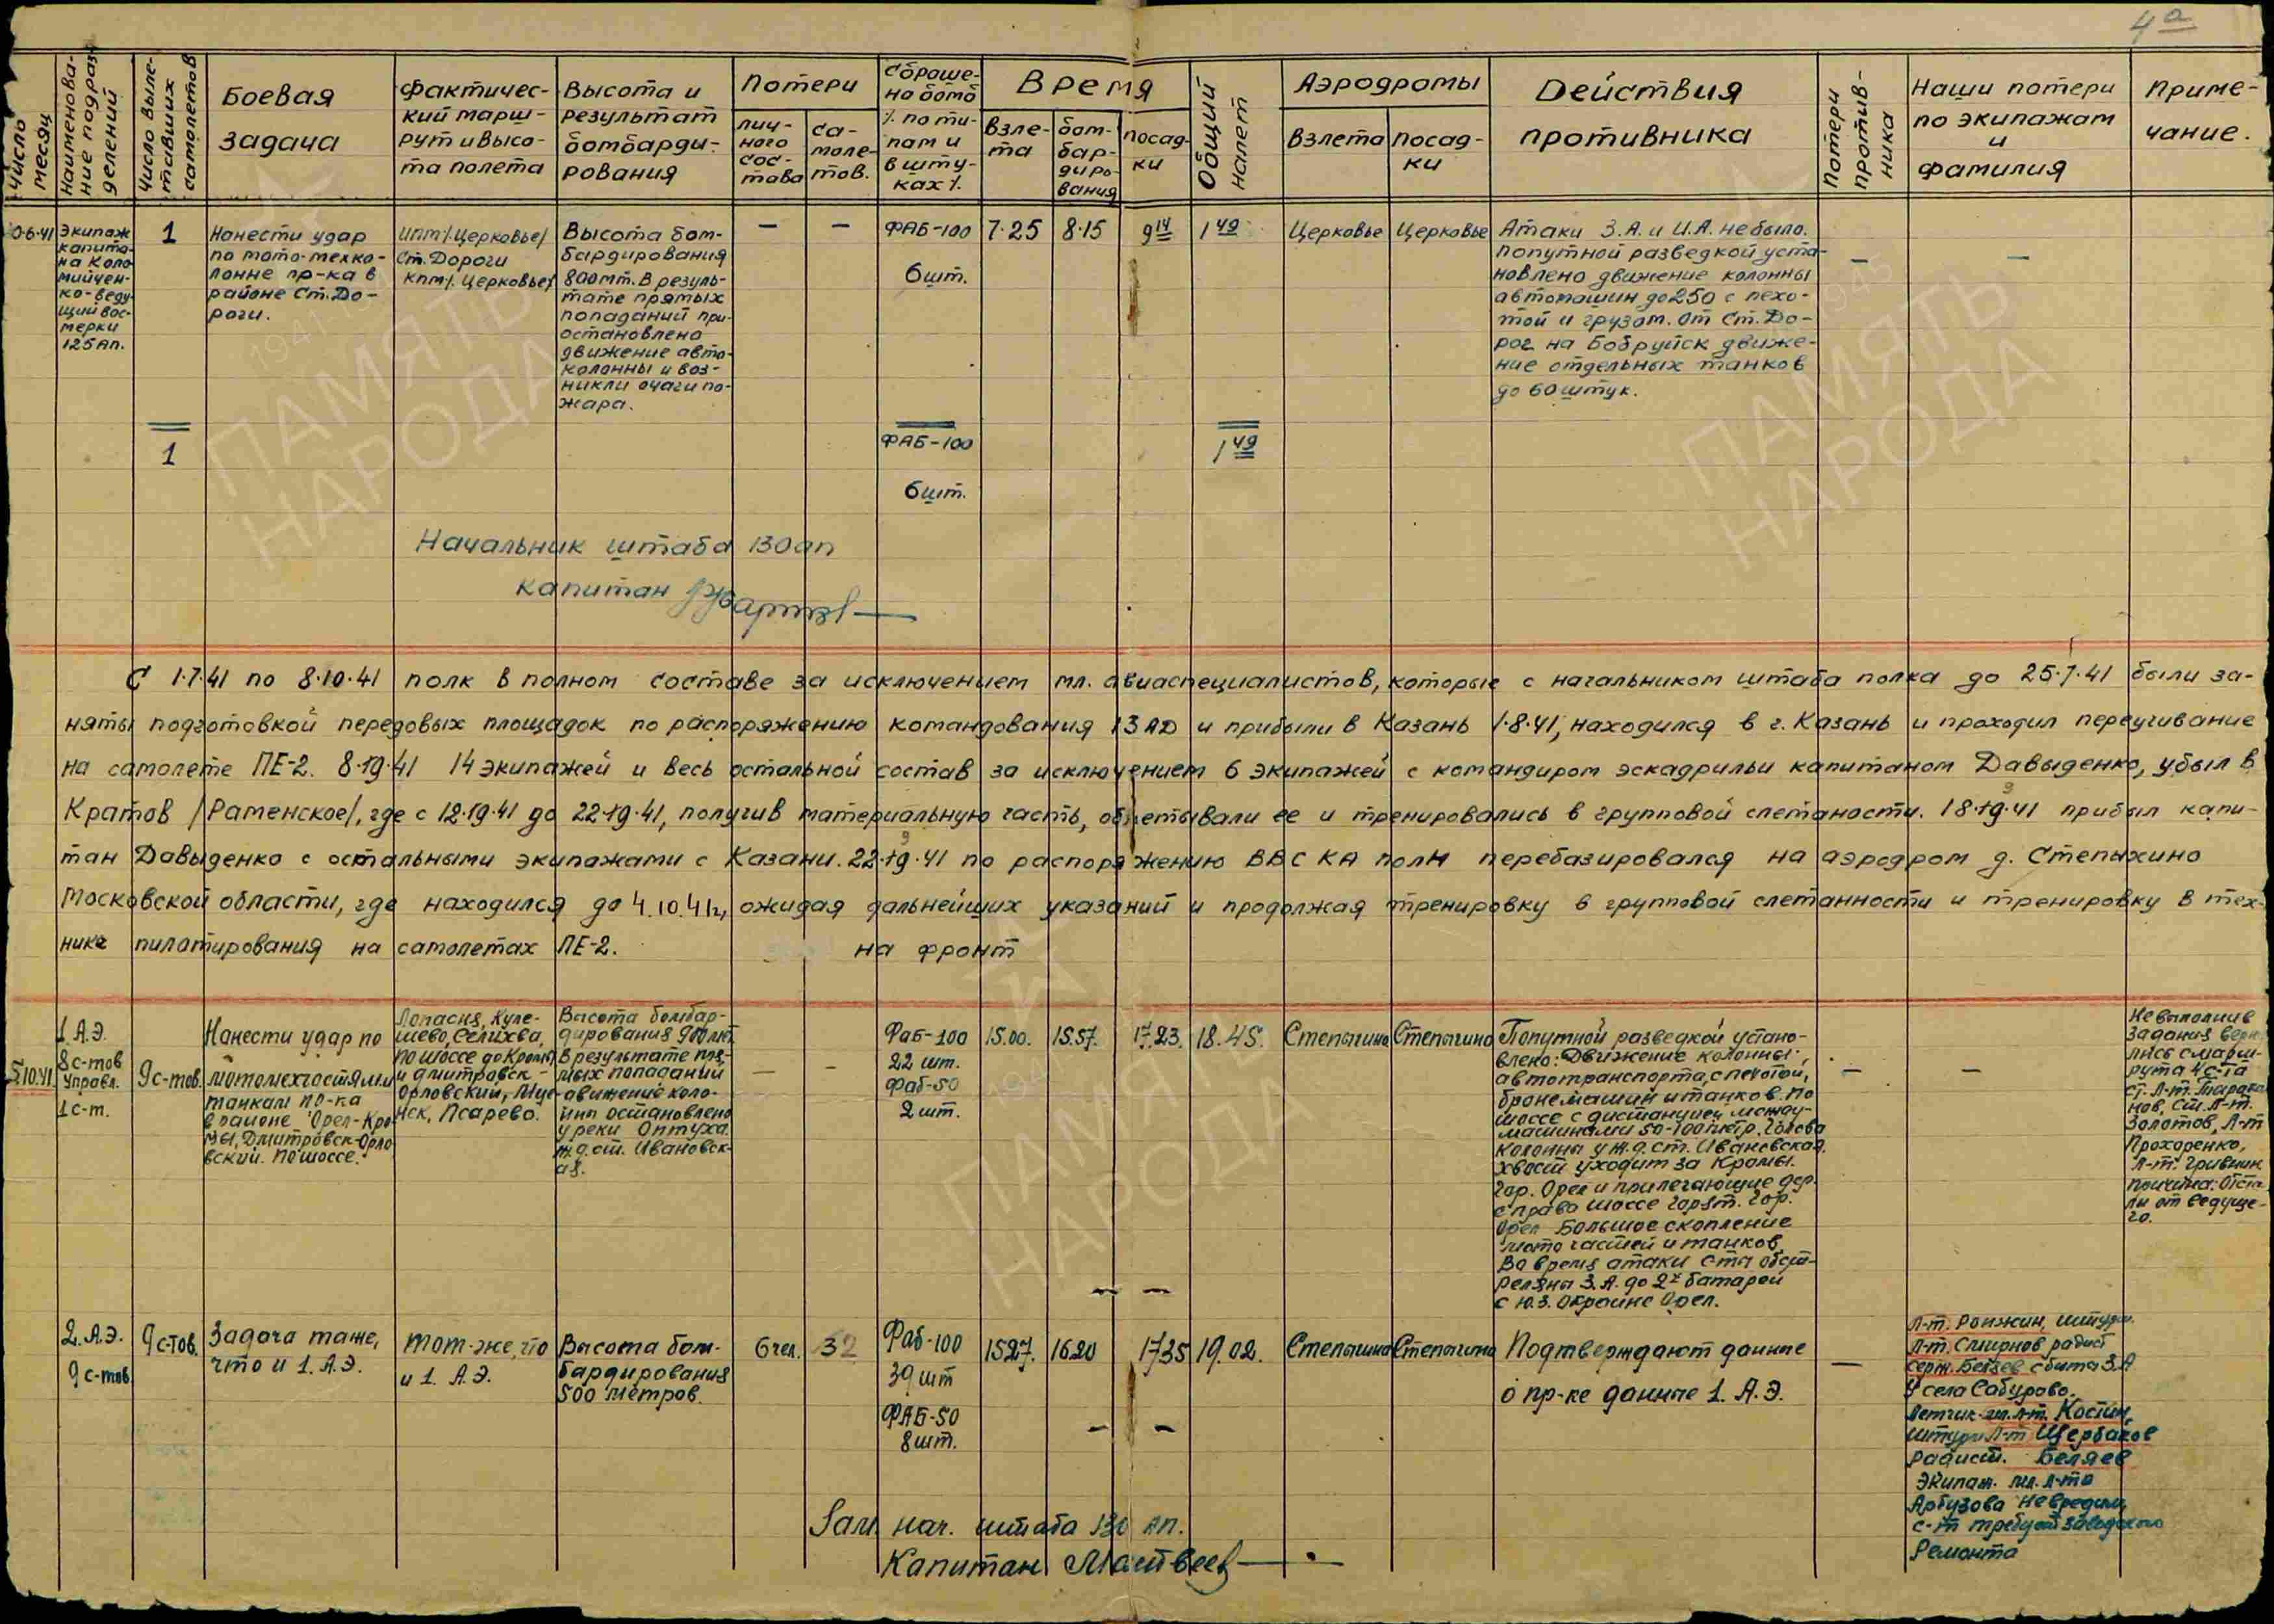 4а
Число месяц
Наименова-
ние подраз-
делений
Число выле-
тавших
самолетов
Боевая
задача
Фактичес-
кий марш-
рут и высо-
та полета
Высота и
результат
бомбарди-
рования
Потери
лич-
ного
сос-
тава
са-
моле-
тов.
Сброше-
но бомб
/. по ти-
пам и
в шту-
ках /.
Время
взле-
та
бом-
бар-
диро-
вания
посад-
ки
Общий
налет
Аэродромы
взлета
посад-
ки
Действия
противника
Потери
против-
ника
Наши потери
по экипажам
и
фамилия
Приме-
чание.
0.6.41
Экипаж
капита-
на Коло-
мийчен-
ко-веду-
щий вос-
мерки
125 ап.
1
Нанести удар
по мото-мехко-
лонне пр-ка в
районе Ст. До-
роги.
ипм/. Церковье/
Ст. Дороги
кпм/. Церковье/
Высота бом-
бардирования
800 мт. В резуль-
тате прямых
попаданий при-
остановлено
движение авто-
колонны и воз-
никли очаги по-
жара.
— —
ФАБ-100
6 шт.
7.25 8.15 9 14 1 49
Церковье Церковье
Атаки З.А. и И.А. не было.
попутной разведкой уста-
новлено движение колонны
автомашин до 250 с пехо-
той и грузом. От Ст. До-
рог на Бобруйск движе-
ние отдельных танков
до 60 штук.
— —
1
ФАБ-100
6 шт.
1 49
Начальник штаба 130 ап
капитан
С 1.7.41 по 8.10.41 полк в полном составе за исключением мл. авиаспециалистов, которые с начальником штаба полка до 25.7.41 были за-
няты подготовкой передовых площадок по распоряжению командования 13 АД и прибыли в Казань 1.8.41, находился в г. Казань и проходил переучивание
на самолете ПЕ-2. 8.19.41 14 экипажей и весь остальной состав за исключением 6 экипажей с командиром эскадрильи капитаном Давыденко, убыл в
Кратов /Раменское/, где с 12.19.41 до 22.19.41, получив материальную часть, облетывали ее и тренировались в групповой слетаности. 18.19.41 прибыл капи-
тан Давыденко с остальными экипажами с Казани. 22.19.41 по распоряжению ВВС КА полк перебазировался на аэродром д. Степыхино
Московской области, где находился до 4.10.41г, ожидая дальнейших указаний и продолжая тренировку в групповой слетанности и тренировку в тех-
нике пилотирования на самолетах ПЕ-2. на фронт
5.10.41.
1. А.Э.
8 с-тов
Управл.
1 с-т.
9 с-тов.
Нанести удар по
мотомехчастям и
танкам пр-ка
в районе Орел-Кро-
мы, Дмитровск-Орло-
вский. По шоссе.
Лопасня, Куле-
шево, Селихва,
по шоссе до Кромы
и Дмитровск-
Орловский, Мце-
нск, Псарево.
Высота бомбар-
дирования 900 мт.
В результате пря-
мых попаданий
движение коло-
нны остановлено
у реки Оптуха
ж.д. ст. Ивановск-
ая.
— —
ФаБ-100
22 шт.
Фаб-50
2 шт.
15.00. 15.57. 17.23. 18.45.
Степыгино Степыгино
Попутной разведкой устано-
влено: Движение колонны
автотранспорта, с пехотой,
бронемашин и танков. По
шоссе с дистанцией между-
машинами 50-100 метр. Голова
колонны у ж.д. ст. Ивановская.
хвост уходит за Кромы.
Гор. Орел и прилегающие дер.
справа шоссе горят. Гор.
Орел Большое скопление
мото частей и танков.
Во время атаки с-ты обст-
реляны З.А. до 2х батарей
с Ю.З. Окраине Орел.
— —
Не выполнив
задания верн-
лись с марш-
рута 4 с-та
ст. л-т. Тарака-
нов, Ст. л-т.
Золотов, л-т
Прохоренко,
л-т. Гривнин
причина: Отста-
ли от ведуще-
го.
2. А.Э.
9 с-тов
9 с-тов.
Задача таже,
что и 1. А.Э.
Тот-же, что
и 1. А.Э.
Высота бом-
бардирования
500 метров.
6 чел.
Фаб-100
39 шт
ФАБ-50
8 шт.
15.27. 16.20 17.35 19.02.
Степыгино Степыгино
Подтверждают данные
о пр-ке данные 1. А.Э.
—
л-т. Ронжин, штурм.
л-т. Смирнов радист
серж. сбит З.А
у села Сабурово.
Летчик мл. л-т. Костин,
штурм л-т Щербаков
радист. Беляев
Экипаж. мл. л-та
Арбузова невредим,
с-т требует заводского
Ремонта
Зам нач. штаба 130 ап.
Капитан Матвеев
ПАМЯТЬ
НАРОДА
ПАМЯТЬ
НАРОДА
ПАМЯТЬ
НАРОДА